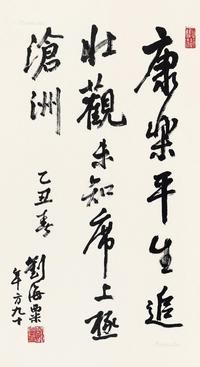 康樂平生追
壯觀未知席上極
滄洲
乙丑春
劉海粟
年方九十